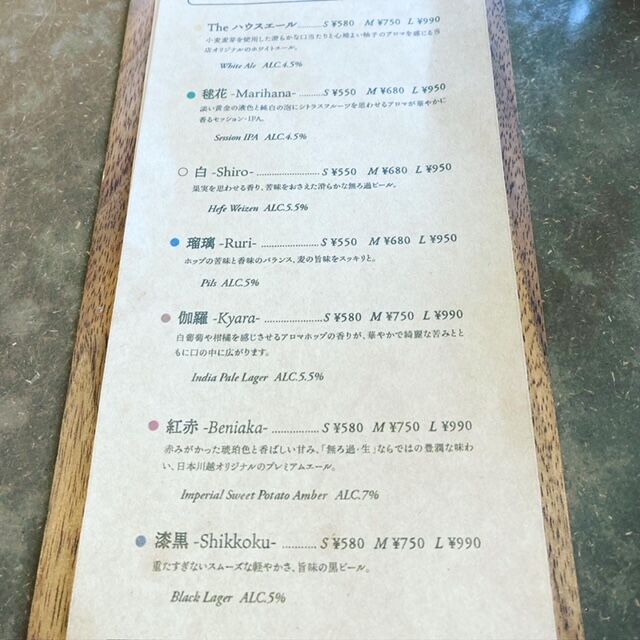 The ハウスエール ........ S ¥580 M ¥750 L ¥990
小麦麦芽を使用した滑らかな口当たりと心地よい柚子のアロマを感じる当
店オリジナルのホワイトエール。
White Ale ALC.4.5%
毬花 -Marihana- ......... S ¥550 M ¥680 L ¥950
淡い黄金の液色と純白の泡にシトラスフルーツを思わせるアロマが華やかに
香るセッション・IPA。
Session IPA ALC.4.5%
白 -Shiro- ..................... S ¥550 M ¥680 L ¥950
果実を思わせる香り、苦味をおさえた滑らかな無ろ過ビール。
Hefe Weizen ALC.5.5%
瑠璃 -Ruri- .................... S ¥550 M ¥680 L ¥950
ホップの苦味と香味のバランス、麦の旨味をスッキリと。
Pils ALC.5%
伽羅 -Kyara- ................. S ¥580 M ¥750 L ¥990
白葡萄や柑橘を感じさせるアロマホップの香りが、華やかで綺麗な苦みとと
もに口の中に広がります。
India Pale Lager ALC.5.5%
紅赤 -Beniaka- ................ S ¥580 M ¥750 L ¥990
赤みがかった琥珀色と香ばしい甘み、「無ろ過・生」ならではの豊潤な味わ
い、日本川越オリジナルのプレミアムエール。
Imperial Sweet Potato Amber ALC.7%
漆黒 -Shikkoku- ........... S ¥580 M ¥750 L ¥990
重たすぎないスムーズな軽やかさ、旨味の黒ビール。
Black Lager ALC.5%